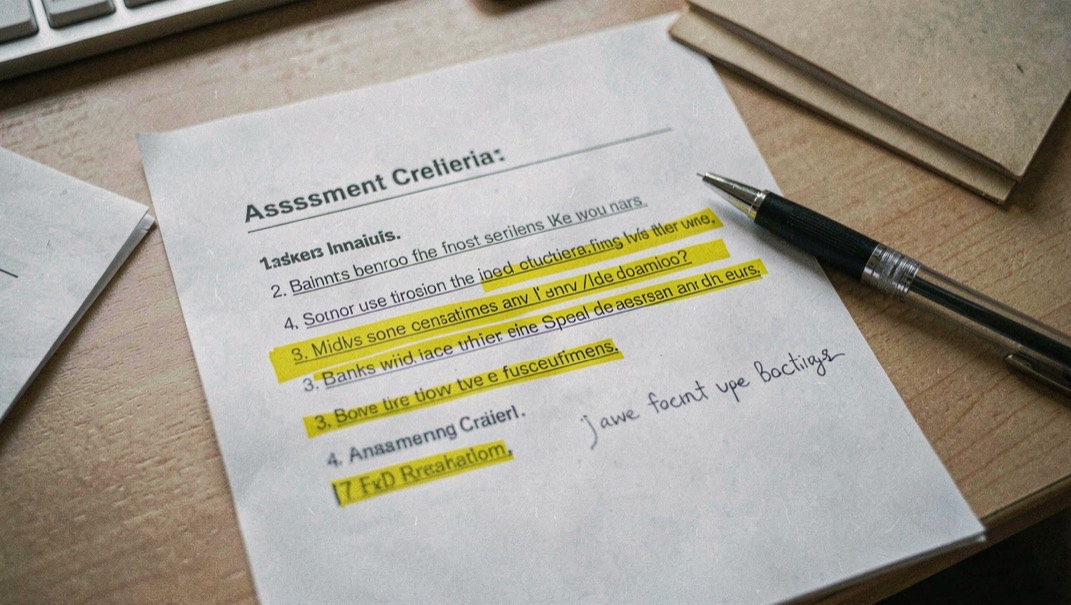 Asssssment Crelieria:
1.askers Innaiuis.
2. Balnnts benroo fhe fnost serilens lKe wou nars.
4. Sotnor use tirosion the ined ctuctiera.fims lvis ther wne.
3. Midvs sone censatimes anv l'anrv /lde doamioo?
3. Banks wiid iace whier eine Speal de aesrsan anr dh eurs.
3. Bowe tire tlow tve e fusceutimens.
4. Anasmernng Craierl.
17 FxD Rreahatlom.
jawe focmt vpe Boctiiags